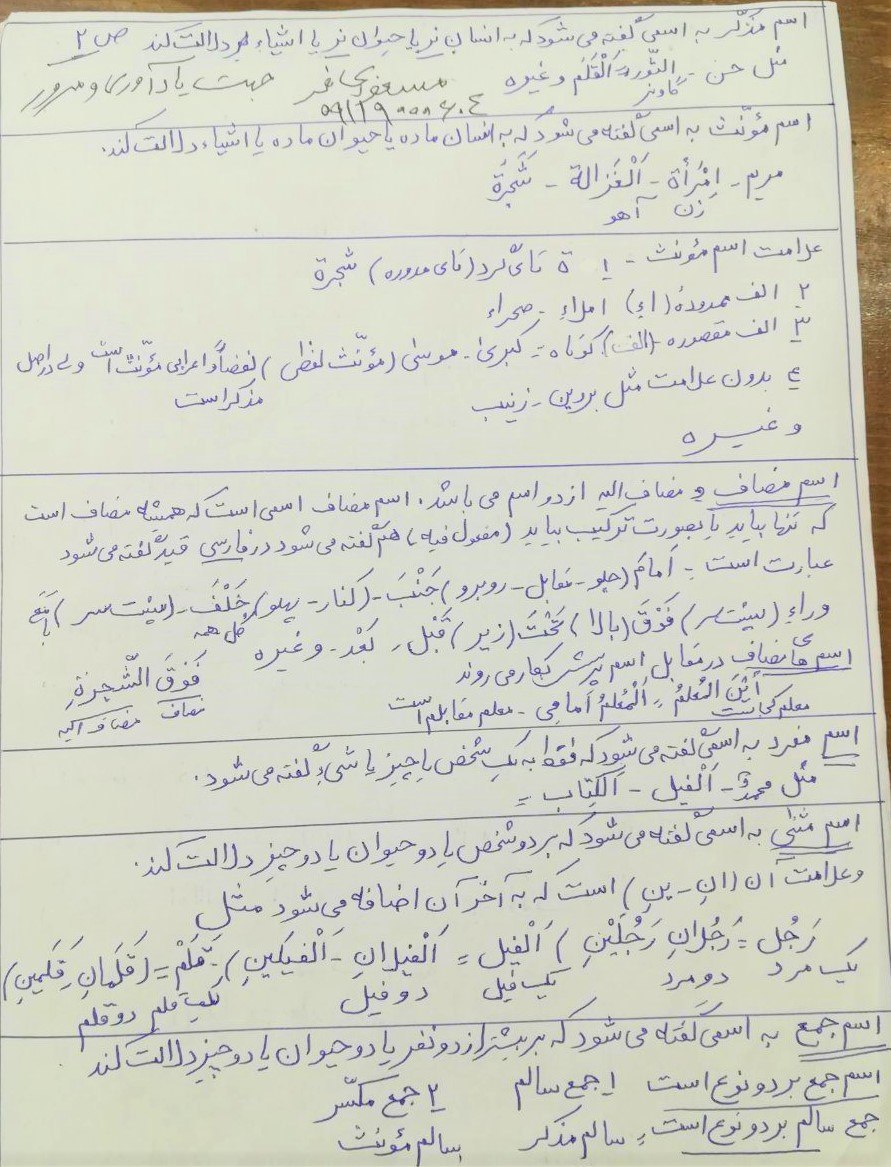 اسم مذکّر به اسمی گفته می شود که به انسان نر یا حیوان نر یا اشیاء نر دلالت کند ص ۲
مثل حسن - الثّور - اَلْقَلَم و غیره
گاو نر
جهت یادآوری و مرور
اسم مؤنّث به اسمی گفته می شود که به انسان ماده یا حیوان ماده یا اشیاء دلالت کند.
مریم - اِمْرَأة - اَلْغَزالة - شَجَرَة
زن آهو
علامت اسم مؤنث - ۱ ة تای گرد (تای مدوره) شجرة
۲ الف ممدوده (اء) املاء - صحراء
۳ الف مقصوره - (الف) کوتاه - کبری - موسی (مؤنّث لفظی) لفضاً و اعرابی مؤنّث است ولی در اصل
مذکر است
۴ بدون علامت مثل پروین - زینب
و غیره
اسم مضاف و مضاف الیه از دو اسم می باشد. اسم مضاف اسمی است که همیشه مضاف است
که تنها بیاید یا بصورت ترکیب بیاید (مفعول فیه) هم گفته می شود در فارسی قید گفته می شود
عبارت است - اَمامَ (جلو - مقابل - روبرو) جَنْبَ - (کنار - پهلو) خَلْفَ - (پشت سر)
وراءِ (پشت سر) فَوْقَ (بالا) تَحْتَ (زیر) قَبْل - بَعْد - و غیره
کُل همه
اسم های مضاف در مقابل اسم پرسش بکار می روند
فَوْقَ الشَّجرةِ
مضاف مضاف الیه
اَیْنَ المُعلمُ = اَلْمُعلمُ اَمامی - معلم مقابلم است
معلم کجاست
اسم مفرد به اسمی گفته می شود که فقط به یک شخص یا چیز یا شیء گفته می شود.
مثل محمد - اَلْفیل - اَلْکِتاب =
اسم مثنی به اسمی گفته می شود که بر دو شخص یا دو حیوان یا دو چیز دلالت کند.
و علامت آن (انِ - ینِ) است که به آخر آن اضافه می شود مثل
رَجُل = رَجُلانِ رَجُلَیْنِ) اَلْفیل = اَلْفیلانِ - اَلْفیلَینِ) - قَلَمْ = (قَلَمانِ - قَلَمینِ)
یک مرد دو مرد یک فیل دو فیل یک قلم دو قلم
اسم جمع به اسمی گفته می شود که بر بیشتر از دو نفر یا دو حیوان یا دو چیز دلالت کند
اسم جمع بر دو نوع است ۱ جمع سالم ۲ جمع مکسّر
جمع سالم بر دو نوع است = سالم مذکر سالم مؤنث